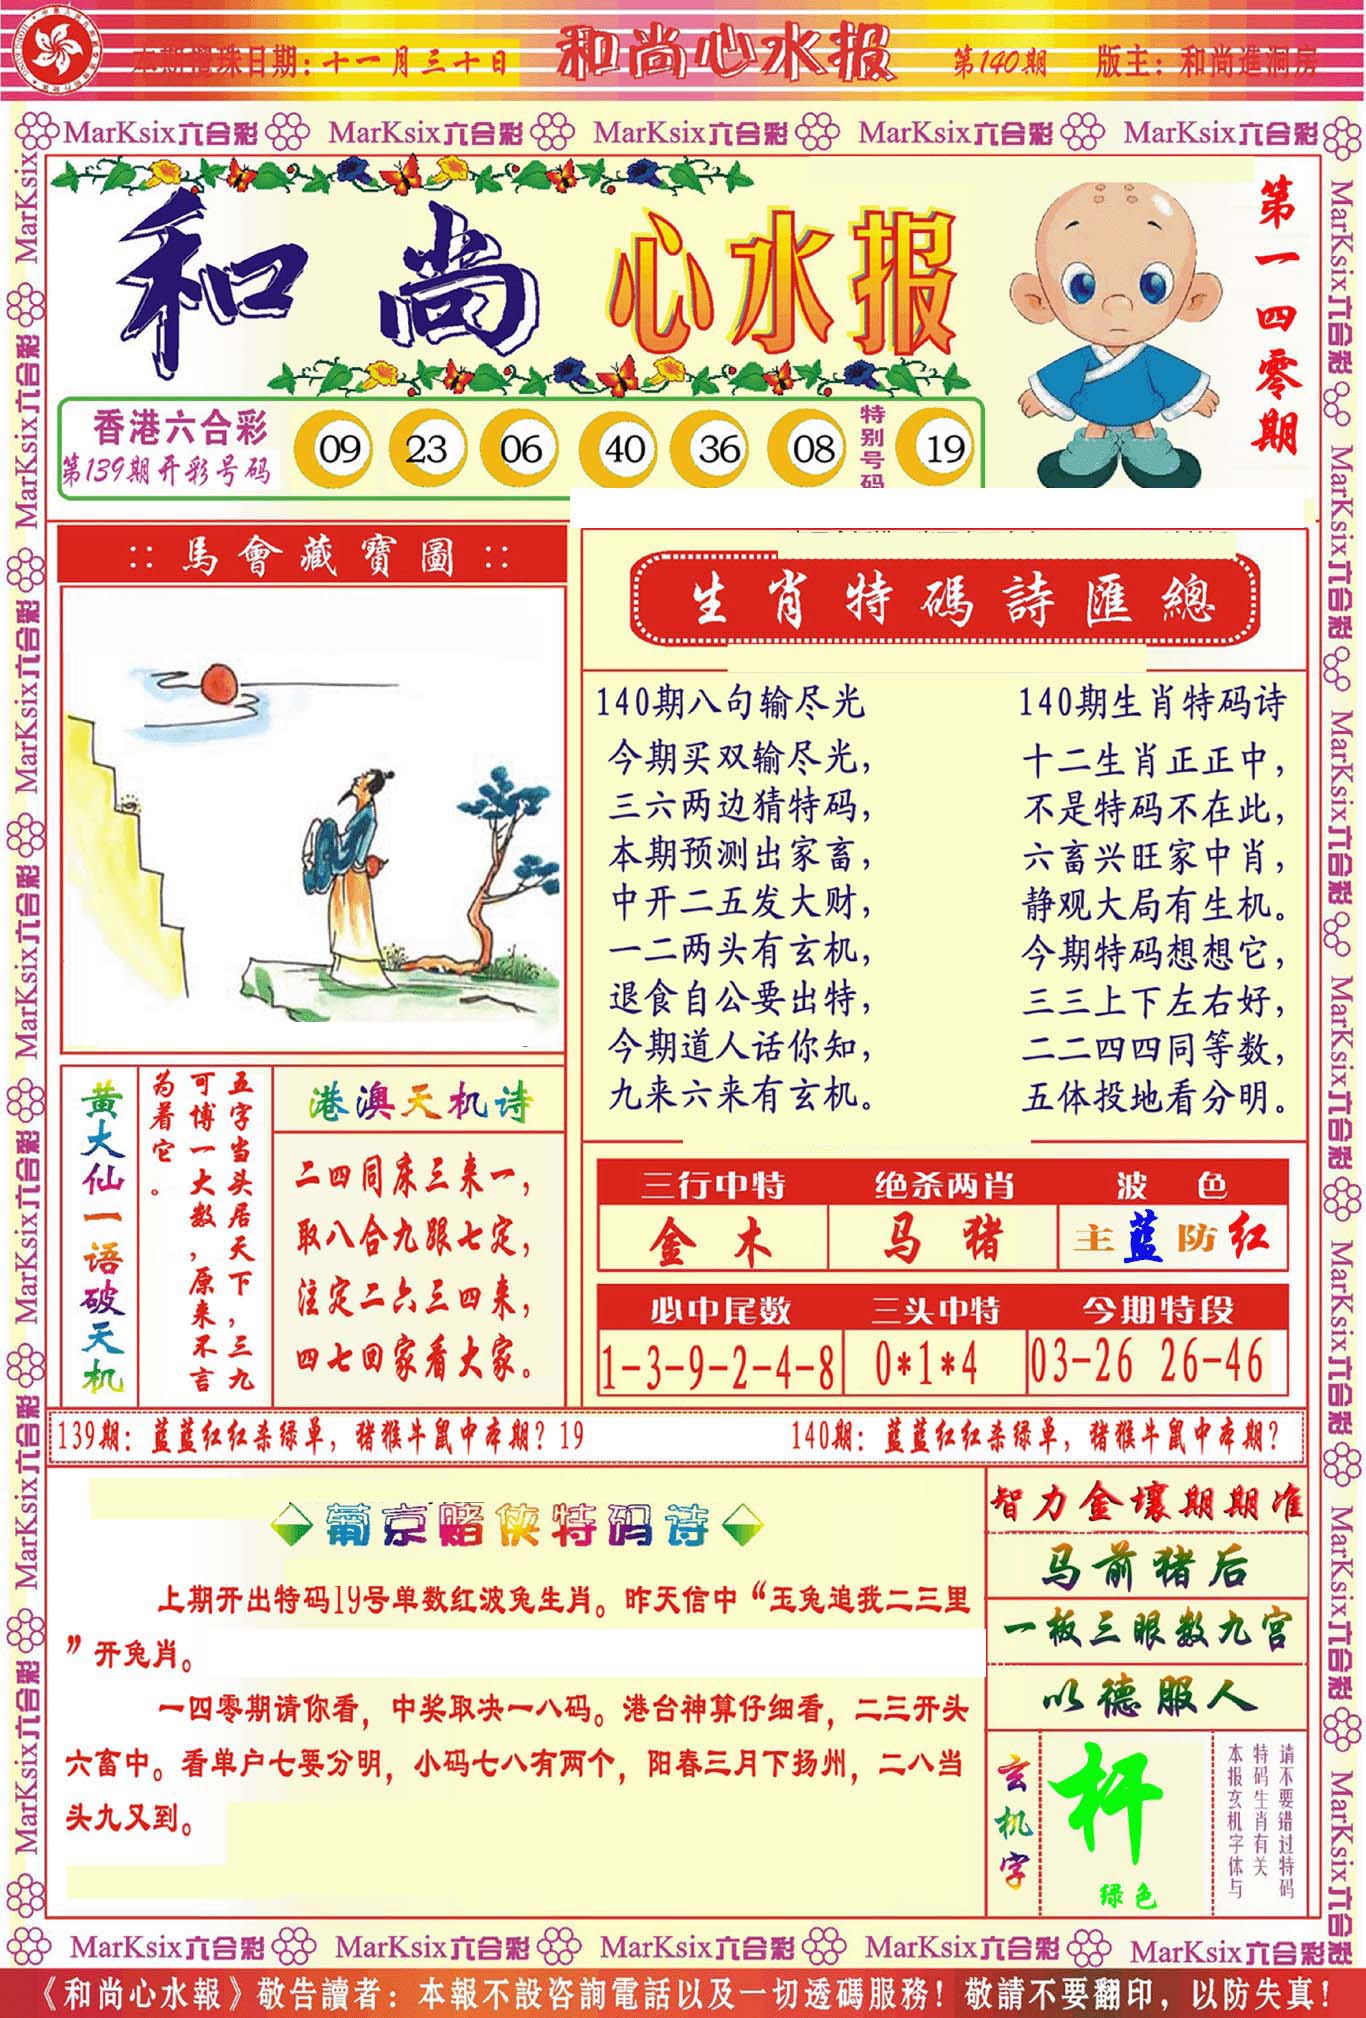 本期攪珠日期:十一月三十日
和尚心水报
第140期
版主：和尚進洞房
MarKsix六合彩 MarKsix六合彩 MarKsix六合彩 MarKsix六合彩 MarKsix六合彩
和尚心水报
第一四零期
香港六合彩
第139期开彩号码
09 23 06 40 36 08 特别号码 19
::馬會藏寶圖::
生肖特碼詩匯總
140期八句输尽光
今期买双输尽光，
三六两边猜特码，
本期预测出家畜，
中开二五发大财，
一二两头有玄机，
退食自公要出特，
今期道人话你知，
九来六来有玄机。
140期生肖特码诗
十二生肖正正中，
不是特码不在此，
六畜兴旺家中肖，
静观大局有生机。
今期特码想想它，
三三上下左右好，
二二四四同等数，
五体投地看分明。
黄大仙一语破天机
五字当头居天下，三九
可博一大数，原来不言
为着它。
港澳天机诗
二四同床三来一，
取八合九跟七定，
注定二六三四来，
四七回家看大家。
三行中特 绝杀两肖 波色
金木 马猪 主蓝防红
必中尾数 三头中特 今期特段
1-3-9-2-4-8 0*1*4 03-26 26-46
139期：蓝蓝红红杀绿单，猪猴牛鼠中本期？19
140期：蓝蓝红红杀绿单，猪猴牛鼠中本期？
葡京赌侠特码诗
上期开出特码19号单数红波兔生肖。昨天信中“玉兔追我二三里
”开兔肖。
一四零期请你看，中奖取决一八码。港台神算仔细看，二三开头
六畜中。看单户七要分明，小码七八有两个，阳春三月下扬州，二八当
头九又到。
智力金壤期期准
马前猪后
一板三眼数九宫
以德服人
玄机字
杆
绿色
请不要错过特码
特码生肖有关
本报玄机字体与
MarKsix六合彩 MarKsix六合彩 MarKsix六合彩 MarKsix六合彩 MarKsix六合彩
《和尚心水報》敬告讀者：本報不設咨詢電話以及一切透碼服務！敬請不要翻印，以防失真！